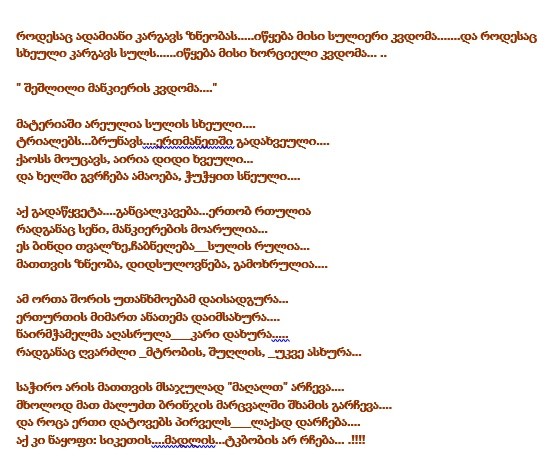 როდესაც ადამიანი კარგავს ზნეობას.....იწყება მისი სულიერი კვდომა.......და როდესაც
სხეული კარგავს სულს......იწყება მისი ხორციელი კვდომა... ..
" შეშლილი მანკიერის კვდომა...."
მატერიაში არეულია სულის სხეული....
ტრიალებს...ბრუნავს....ერთმანეთში გადახვეული....
ქაოსს მოუცავს, აირია დიდი ხვეული...
და ხელში გვრჩება ამაოება, ჭუჭყით სნეული....
აქ გადაწყვეტა....განცალკავება...ერთობ რთულია
რადგანაც სენი, მანკიერების მოარულია...
ეს ბინდი თვალზე,ჩაბნელება__სულის რულია...
მათთვის ზნეობა, დიდსულოვნება, გამოხრულია....
ამ ორთა შორის უთანხმოებამ დაისადგურა...
ერთურთის მიმართ ანათემა დაიმსახურა....
ნაირმჭამელმა აღასრულა___კარი დახურა.....
რადგანაც ღვარძლი _მტრობის, შუღლის, _უკვე ასხურა...
საჭირო არის მათთვის მსაჯულად "მაღალთ" არჩევა....
მხოლოდ მათ ძალუძთ ბრინჯის მარცვალში შხამის გარჩევა....
და როცა ერთი დატოვებს პირველს___ლაქად დარჩება....
აქ კი ნაყოფი: სიკეთის....მადლის...ტკბობის არ რჩება... .!!!!